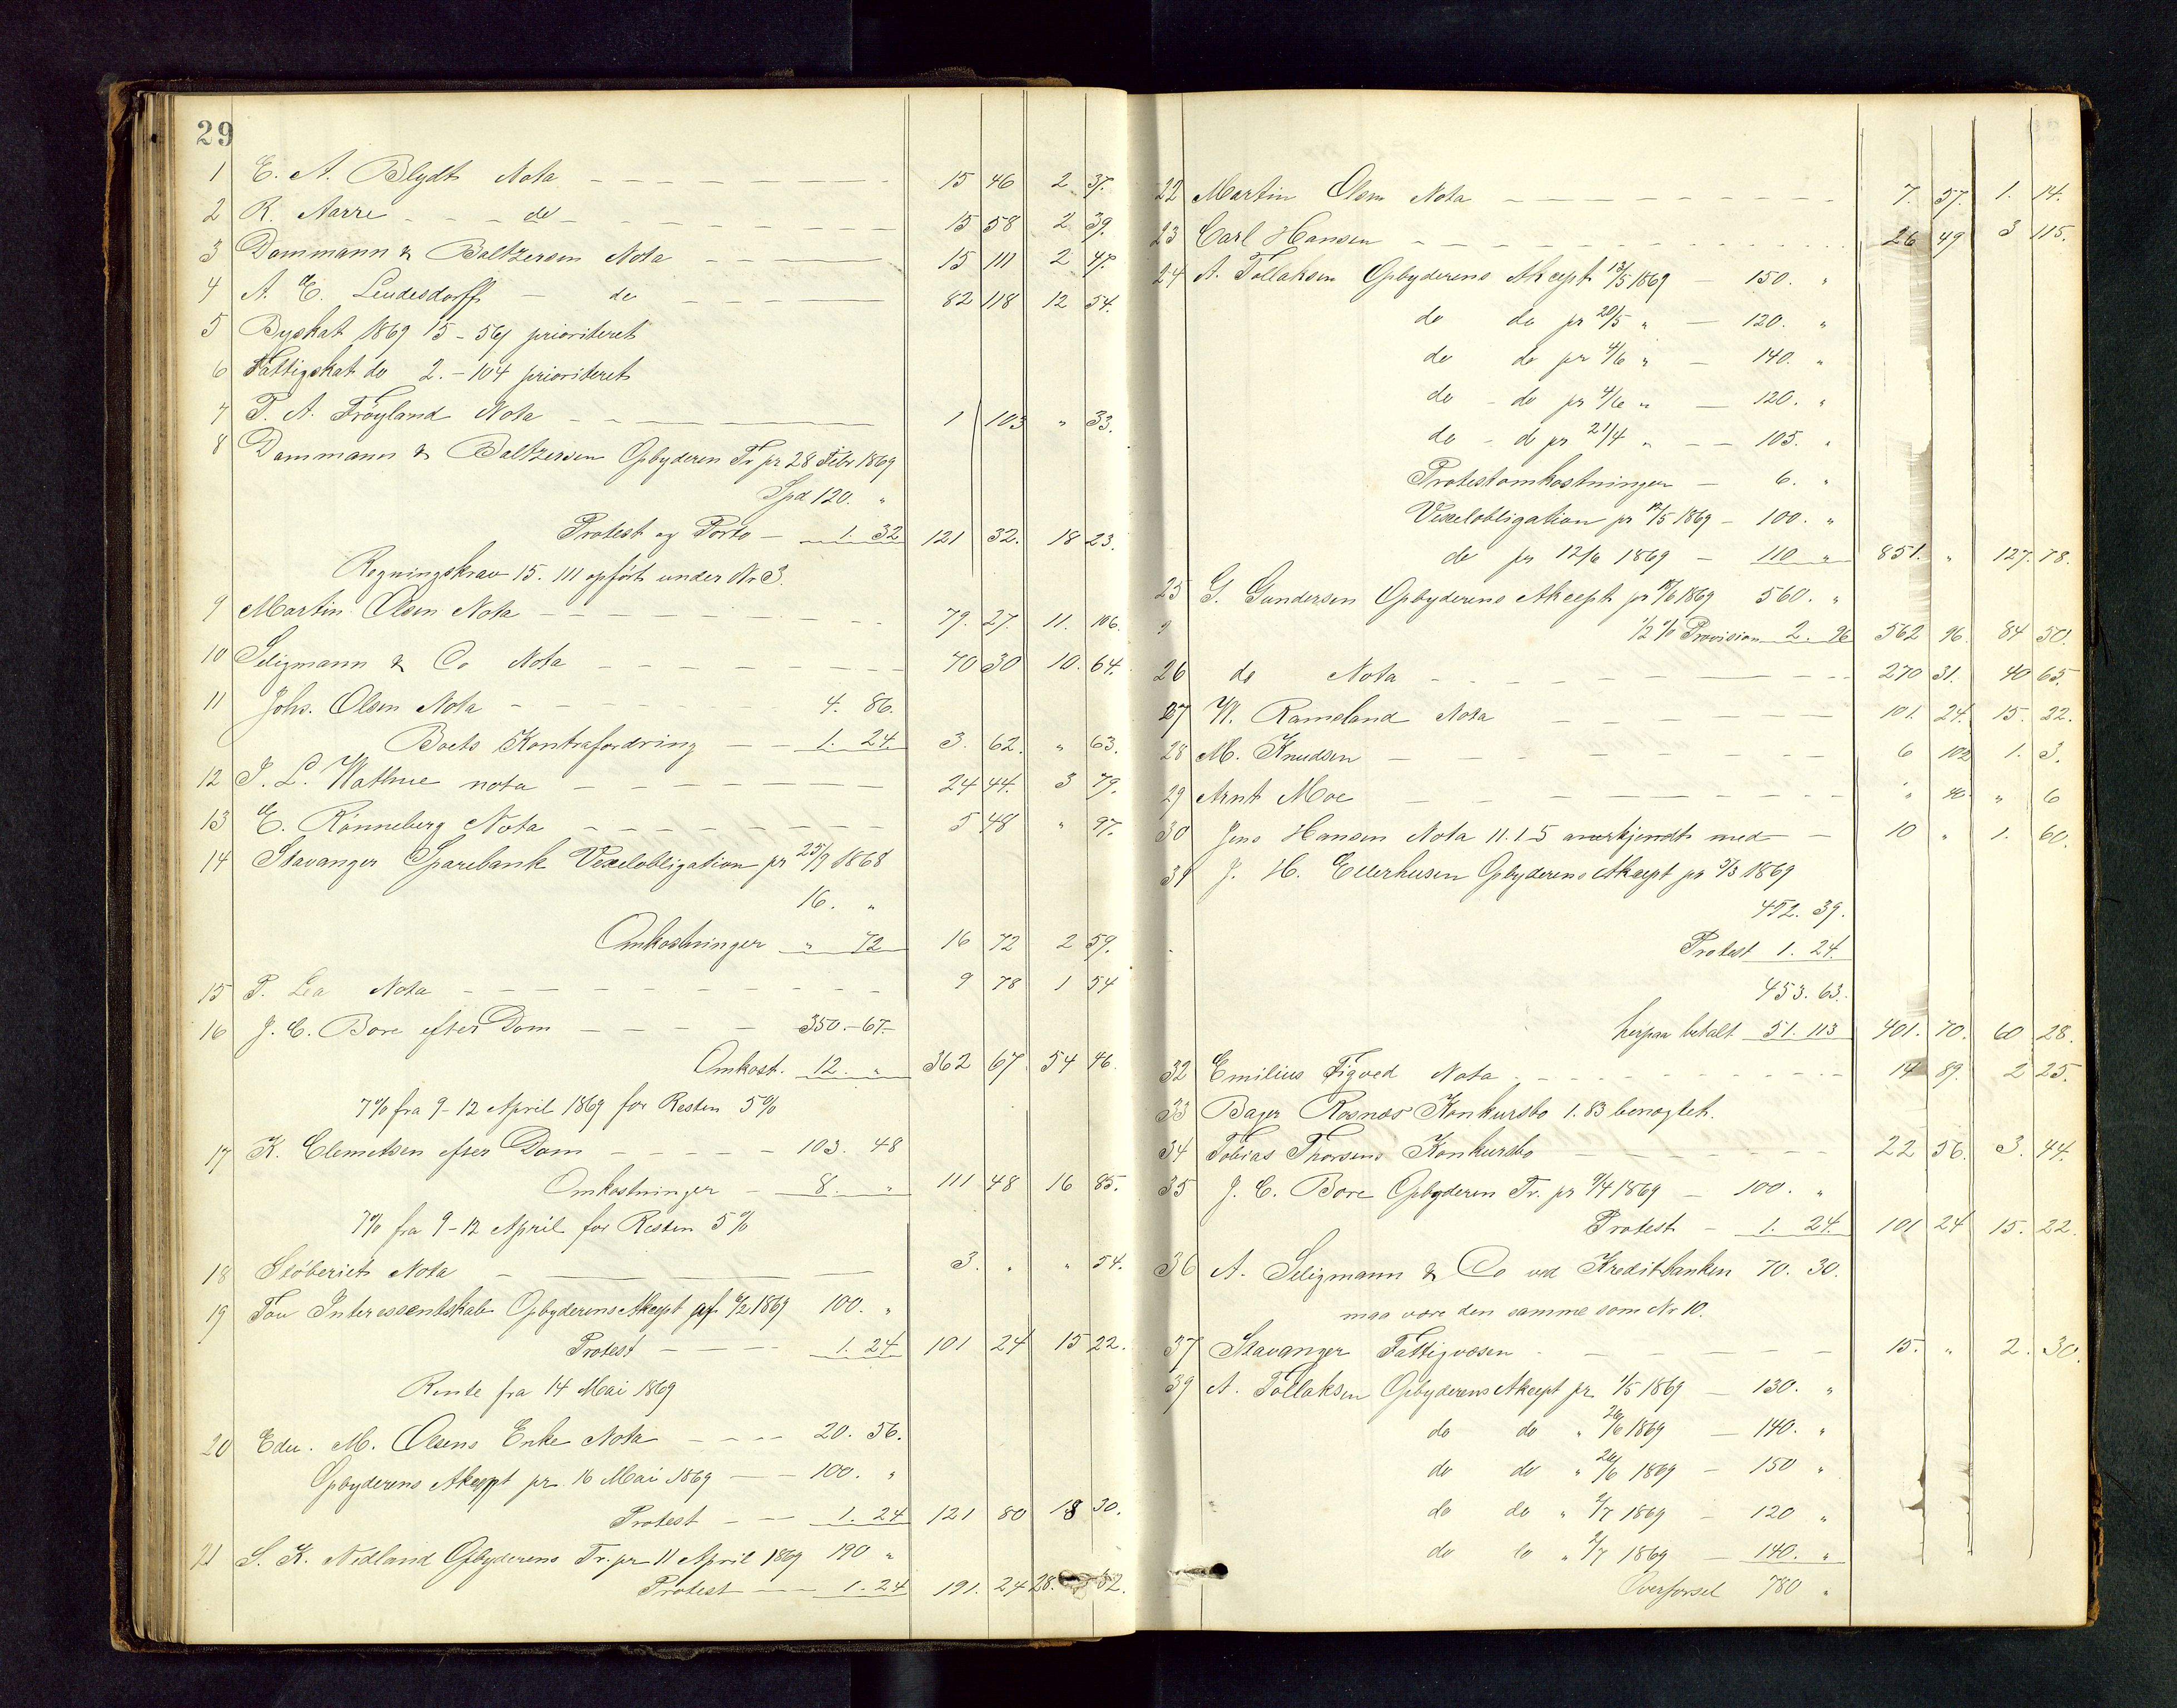 29
1 E. A. Blydt Nota 15 46 2 37.
2 R. Aarre do 15 58 2 39.
3 Dammann & Baltzersen Nota 15 111 2 47.
4 A. E. Leudesdorff do 82 118 12 54.
5 Byskat 1869 15-56 prioriteret
6 Fattigskat do 2.-104 prioriteret
7 T. A. Frøyland Nota 1 103 " 33.
8 Dammann & Baltzersen Opbyderen Tr pr 28 Febr 1869
Spd 120. "
Protest og Porto 1. 32 121 32. 18 23.
Regningskrav 15. 111 opført under Nr 3.
9 Martin Olsen Nota 79. 27. 11. 106.
10 Seligmann & Co Nota 70 30 10. 64.
11 Johs. Olsen Nota 4. 86.
Boets Kontrafordring 1. 24. 3. 62. " 63.
12 J. L. Wathne nota 24 44. 3 79.
13 E. Rønneberg Nota 5 48 " 97.
14 Stavanger Sparebank Vexelobligation pr 25/9 1868
16. "
Omkostninger " 72 16 72 2 59.
15 P. Lea Nota 9 78 1 54
16 J. C. Bore efter Dom 350.-67.-
Omkost. 12. " 362 67. 54 46.
7% fra 9-12 April 1869 for Resten 5%
17 K. Clemetsen efter Dom 103. 48
Omkostninger 8. " 111 48 16 85.
7% fra 9-12 April for Resten 5%
18 Støberiet Nota 3. " " 54.
19 Tou Interessentskab Opbyderens Akcept pr 6/2 1869 100. "
Protest 1. 24 101 24 15 22.
Rente fra 14 Mai 1869
20 Edv. M. Olsens Enke Nota 20. 56.
Opbyderens Akcept pr. 16 Mai 1869 100. "
Protest 1. 24 121 80 18 30.
21 S. K. Nedland Opbyderens Tr. pr 11 April 1869 190 "
Protest 1. 24 191. 24 28. 82.
22 Martin Olsen Nota 7. 57. 1. 14.
23 Carl Hansen 26 49 3 115.
24 A. Tollaksen Opbyderens Akcept 13/5 1869 150. "
do do pr 20/5 " 120. "
do do pr 4/6 " 140. "
do do pr 4/6 " 120. "
do d pr 21/4 " 105. "
Protestomkostninger 6. "
Vexelobligation pr 12/5 1869 100. "
do pr 12/6 1869 110 " 851. " 127. 78.
25 G. Gundersen Opbyderens Akcept pr /6 1869 560. "
1/2 % Provision 2. 96 562 96. 84 50.
26 do Nota 270 31. 40 65.
27 W. Ramsland Nota 101. 24. 15. 22.
28 M. Knudsen 6 102 1. 3.
29 Arnt Moe " 40 " 6
30 Jens Hansen Nota 11.1.5 anerkjendt med 10 " 1. 60.
31 J. H. Ellerhusen Opbyderens Akcept pr /3 1869
452. 39.
Protest 1. 24.
453. 63.
herpaa betalt 51. 113 401. 70. 60 28.
32 Emilius Figved Nota 14 89. 2 25.
33 Bager Rosnæs Konkursbo 1. 83 benægtet.
34 Tobias Thorsens Konkursbo 22 56. 3. 44.
35 J. C. Bore Opbyderen Tr. pr 9/4 1869 100. "
Protest 1. 24. 101 24 15. 22.
36 A. Seligmann & Co ved Kreditbanken 70. 30.
maa være den samme som Nr 10.
37 Stavanger Fattigvæsen 15. " 2. 30.
39 A. Tollaksen Opbyderens Akcept pr. 1/5 1869 130. "
do do " 26/6 1869 140. "
do do " 26/6 1869 150 "
do do " 2/7 1869 120 "
do do " 2/7 1869 140. "
Overførsel 780 "